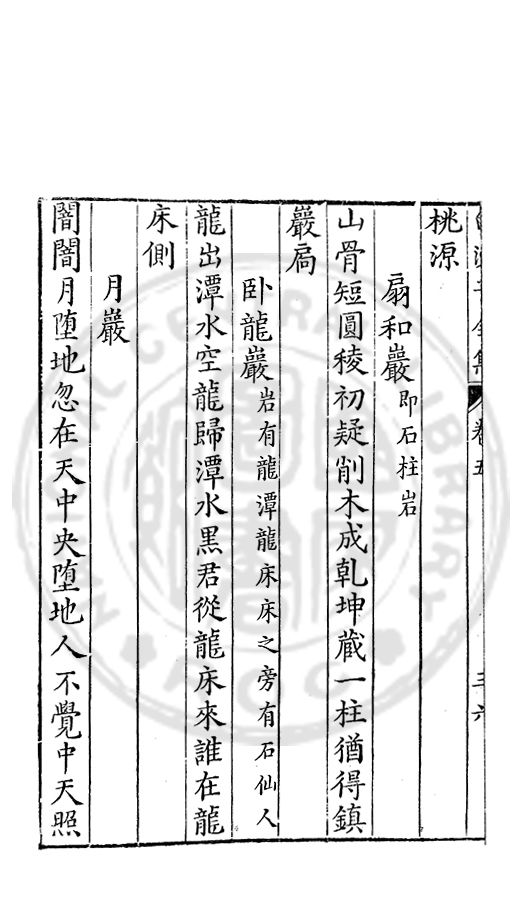 桃源
扇和巖即石柱岩
山骨短圓稜初疑削木成乹坤蔵一柱猶得鎮
巖扃
卧龍巖岩有龍潭龍床床之旁有石仙人
龍出潭水空龍歸潭水黒君從龍床來誰在龍
床側
月巖
闇闇月堕地忽在天中央堕地人不覺中天照